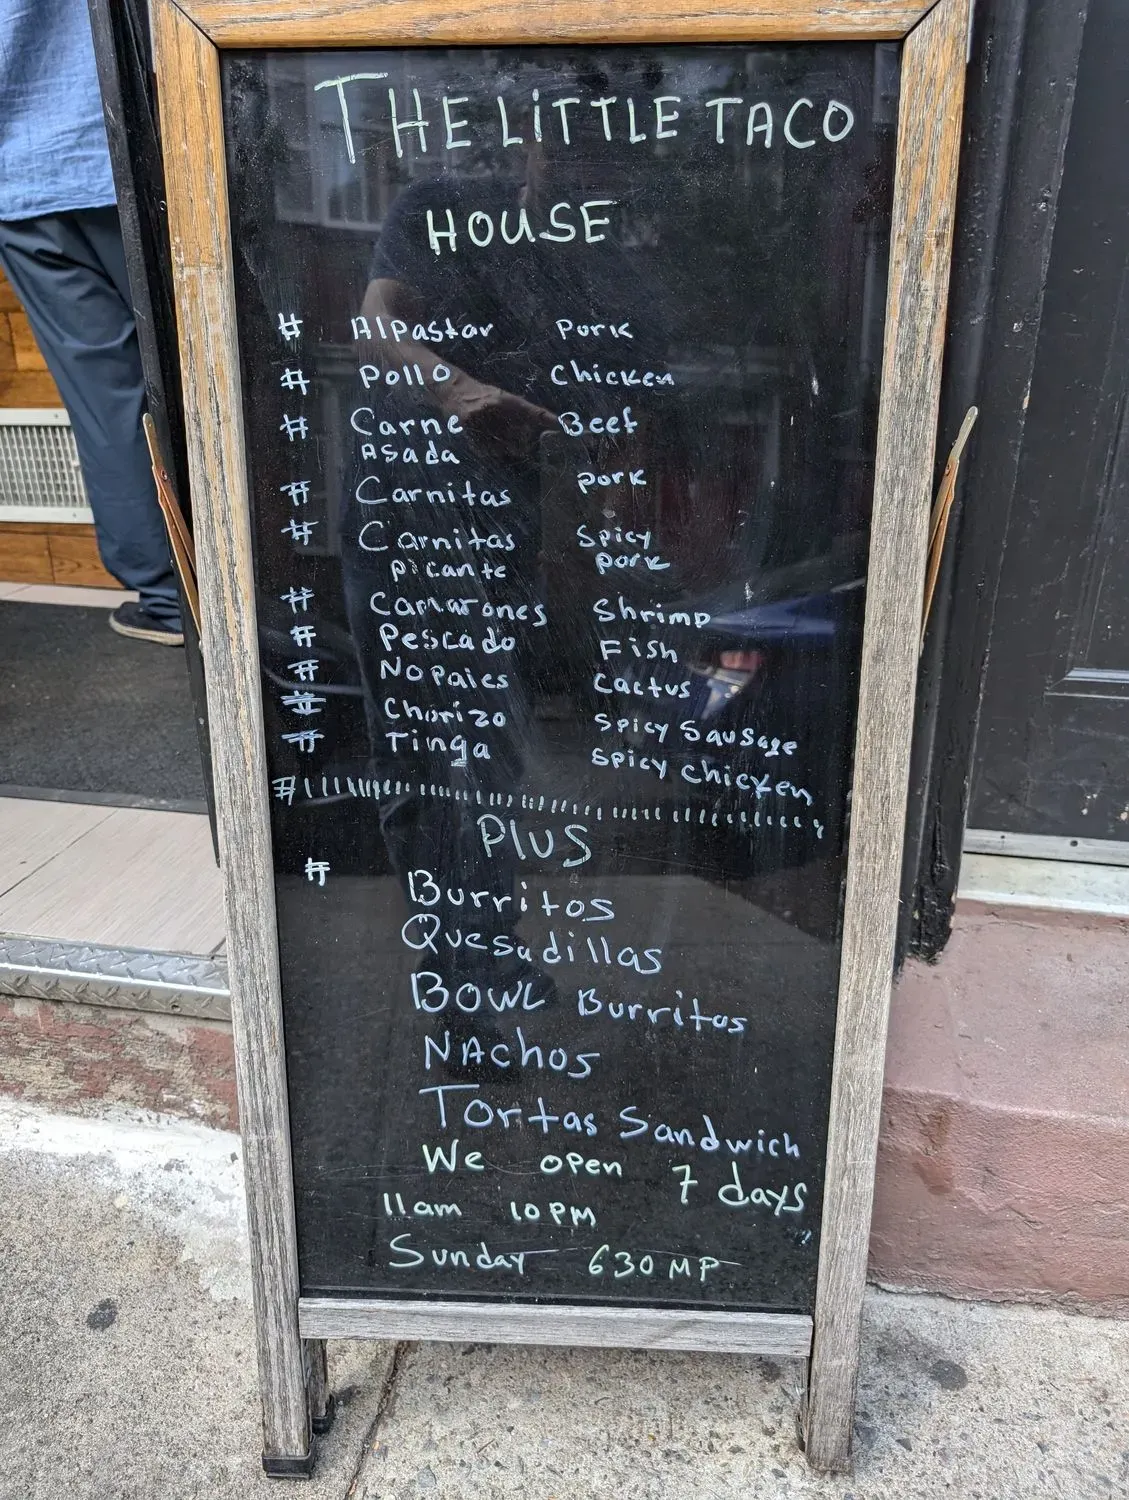 THE LiTTLE TACO
HOUSE
# AlPastor Pork
# Pollo Chicken
# Carne Beef
Asada
# Carnitas pork
# Carnitas Spicy
picante pork
# Camarones Shrimp
# Pescado Fish
# Nopales Cactus
# Chorizo Spicy Sausage
# Tinga Spicy chicken
#
PlUS
# Burritos
Quesadillas
BOWL Burritos
NAchos
Tortas Sandwich
We open 7 days
11am 10PM
Sunday 630 MP